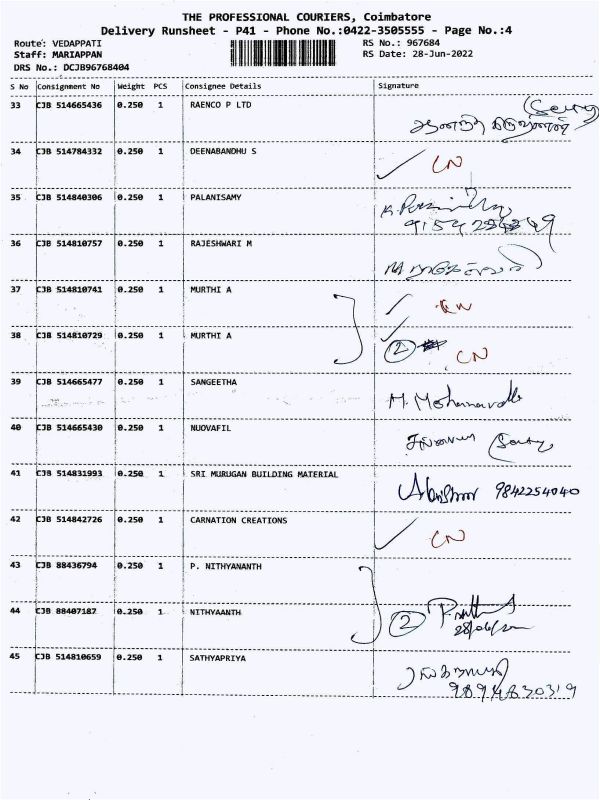 THE PROFESSIONAL COURIERS, Coimbatore
Delivery Runsheet - P41 - Phone No.:0422-3505555 - Page No.:4
Route: VEDAPPATI
Staff: MARIAPPAN
DRS No.: DCJB96768404
RS No.: 967684
RS Date: 28-Jun-2022
S No Consignment No Weight PCS Consignee Details Signature
33 CJB 514665436 0.250 1 RAENCO P LTD
34 CJB 514784332 0.250 1 DEENABANDHU S CN
35 CJB 514840306 0.250 1 PALANISAMY
36 CJB 514810757 0.250 1 RAJESHWARI M
37 CJB 514810741 0.250 1 MURTHI A
38 CJB 514810729 0.250 1 MURTHI A 2 CN
39 CJB 514665477 0.250 1 SANGEETHA
40 CJB 514665430 0.250 1 NUOVAFIL
41 CJB 514831993 0.250 1 SRI MURUGAN BUILDING MATERIAL 9842254040
42 CJB 514842726 0.250 1 CARNATION CREATIONS CN
43 CJB 88436794 0.250 1 P. NITHYANANTH
44 CJB 88407187 0.250 1 NITHYAANTH 2
45 CJB 514810659 0.250 1 SATHYAPRIYA
9894830319